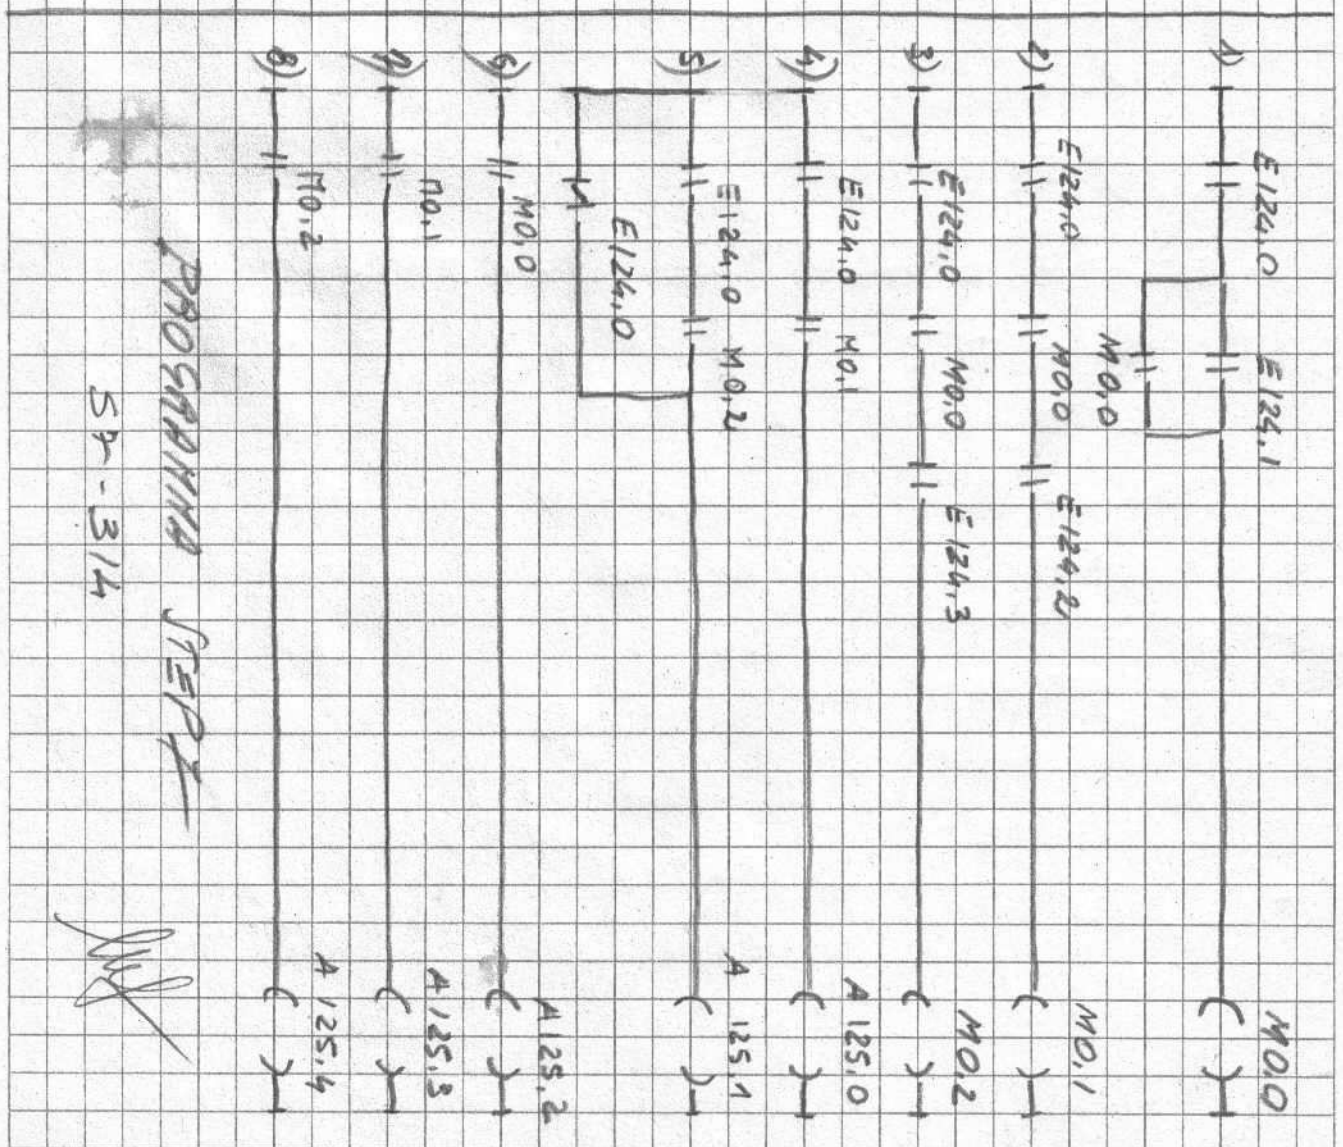 1) E124.0 E124.1 M0.0
M0.0
2) E124.0 M0.0 E124.2 M0.1
3) E124.0 M0.0 E124.3 M0.2
4) E124.0 M0.1 A125.0
5) E124.0 M0.2 A 125.1
E124.0
6) M0.0 A125.2
7) M0.1 A125.3
8) M0.2 A125.4
PROGRAMMA STEP7
S7-314